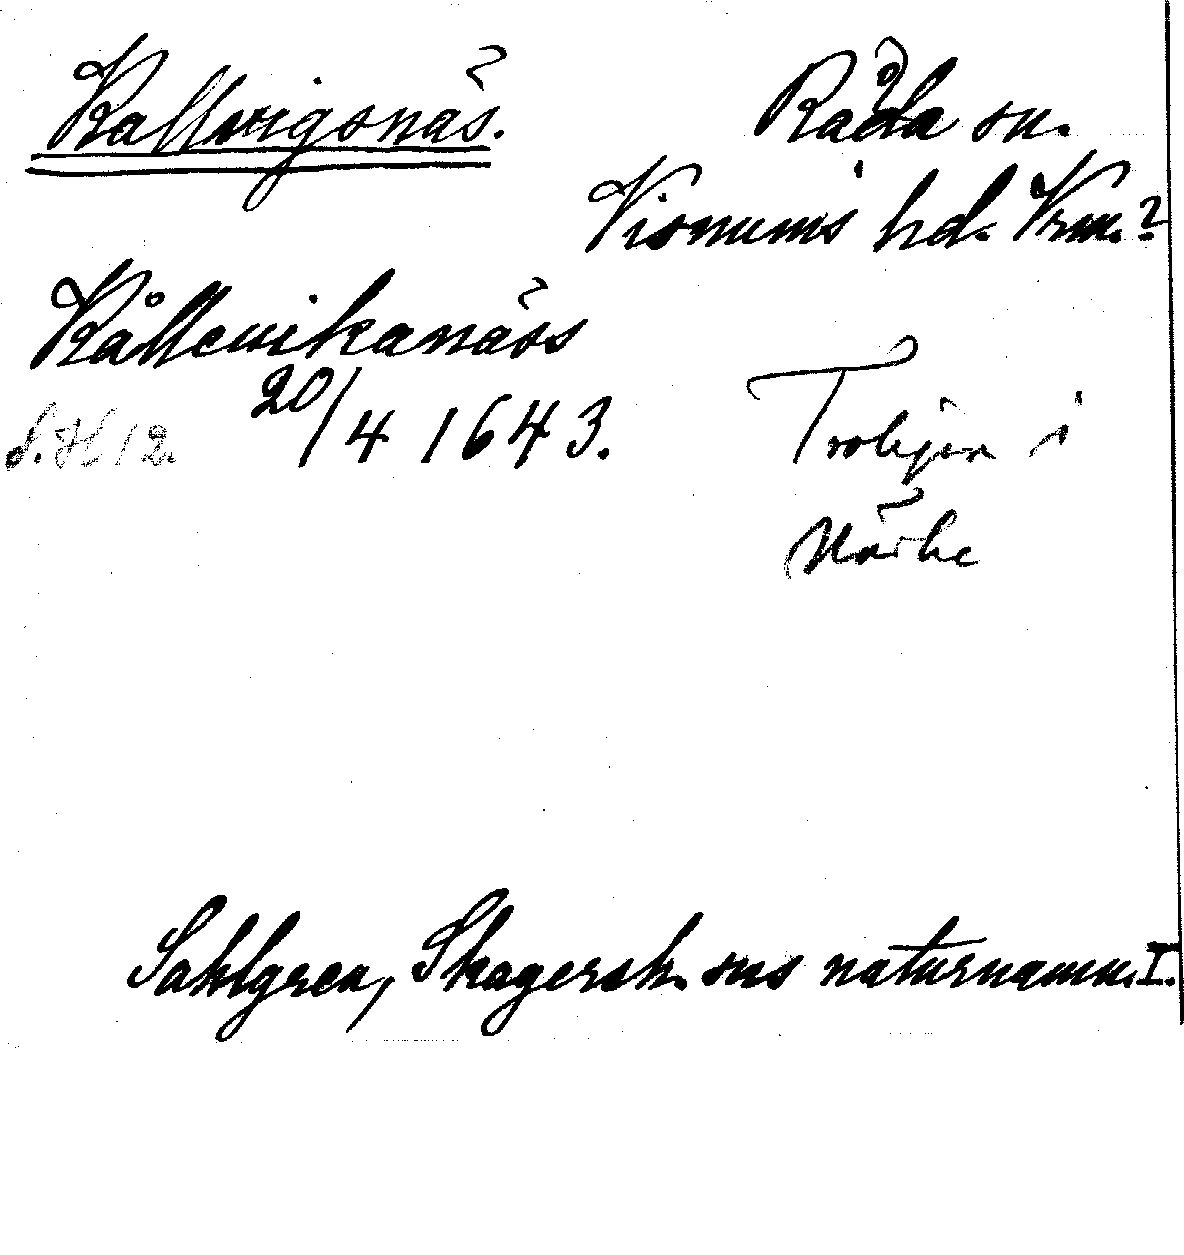 Kallvigsnäs.
Råda sn.
Visnums hd. Vrm.?
Kållewikanäss
20/4 1643.
Troligen i
Närke
Sahlgren, Skagersh. sns naturnamn. I.